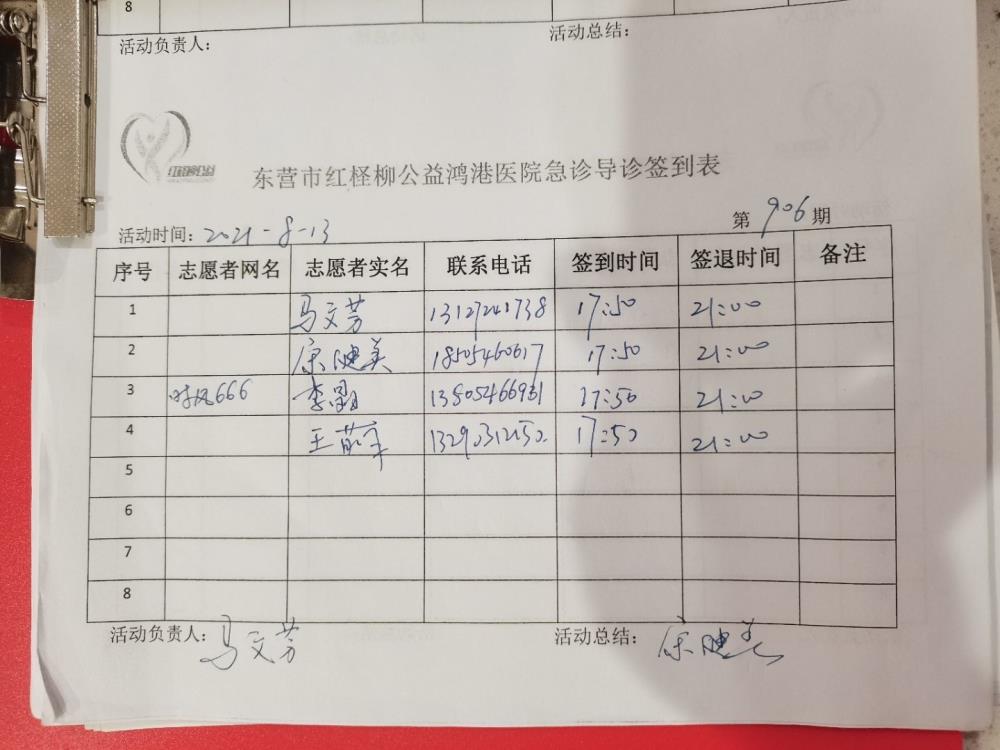 8
活动负责人：
活动总结：
东营市红柽柳公益鸿港医院急诊导诊签到表
活动时间：2021-8-13
第906期
序号 志愿者网名 志愿者实名 联系电话 签到时间 签退时间 备注
1 马文芳 13127241738 17:50 21:00
2 康健美 18505460617 17:50 21:00
3 时风666 李 13805466931 17:50 21:00
4 王 17:50 21:00
5
6
7
8
活动负责人：马文芳
活动总结：康健美